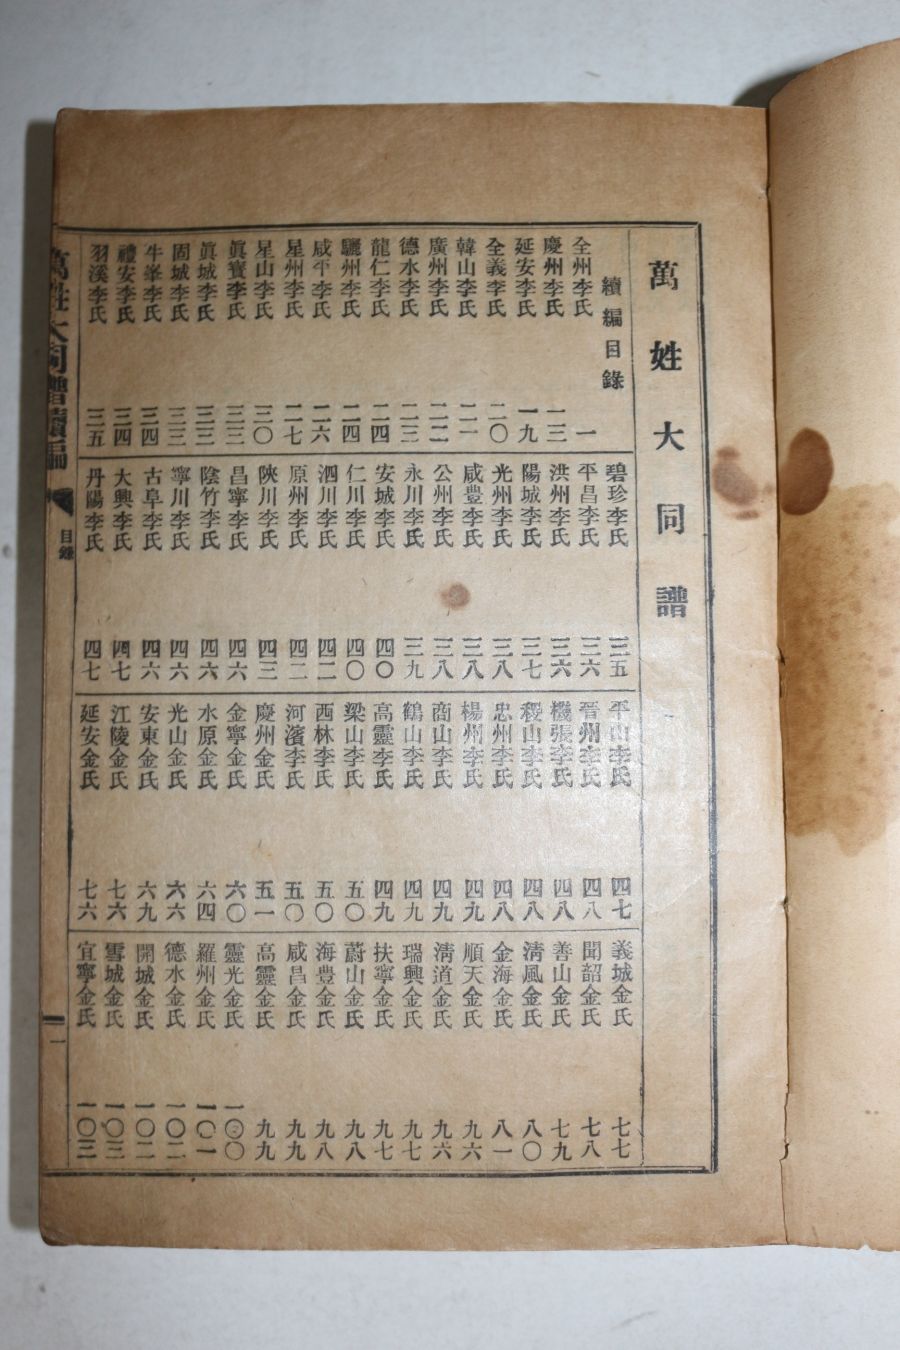 萬姓大同譜
續編目錄
全州李氏 一
慶州李氏 一三
延安李氏 一九
全義李氏 二〇
韓山李氏 二一
廣州李氏 二二
德水李氏 二三
龍仁李氏 二四
驪州李氏 二四
咸平李氏 二六
星州李氏 二七
星山李氏 三〇
眞寶李氏 三三
眞城李氏 三三
固城李氏 三三
牛峯李氏 三四
禮安李氏 三四
羽溪李氏 三五
碧珍李氏 三五
平昌李氏 三六
洪州李氏 三六
陽城李氏 三七
光州李氏 三八
咸豊李氏 三八
公州李氏 三八
永川李氏 三九
安城李氏 四〇
仁川李氏 四〇
泗川李氏 四二
原州李氏 四二
陜川李氏 四三
昌寧李氏 四六
陰竹李氏 四六
寧川李氏 四六
古阜李氏 四六
大興李氏 四七
丹陽李氏 四七
平山李氏 四七
晉州李氏 四八
機張李氏 四八
稷山李氏 四八
忠州李氏 四八
楊州李氏 四九
商山李氏 四九
鶴山李氏 四九
高靈李氏 四九
梁山李氏 五〇
西林李氏 五〇
河濱李氏 五〇
慶州金氏 五一
金寧金氏 六〇
水原金氏 六四
光山金氏 六六
安東金氏 六九
江陵金氏 七六
延安金氏 七六
義城金氏 七七
聞韶金氏 七八
善山金氏 七九
淸風金氏 八〇
金海金氏 八一
順天金氏 九六
淸道金氏 九六
瑞興金氏 九七
扶寧金氏 九七
蔚山金氏 九八
海豊金氏 九八
咸昌金氏 九九
高靈金氏 九九
靈光金氏 一〇〇
羅州金氏 一〇一
德水金氏 一〇二
開城金氏 一〇二
雪城金氏 一〇三
宜寧金氏 一〇三
萬姓大同譜續編 目錄 一